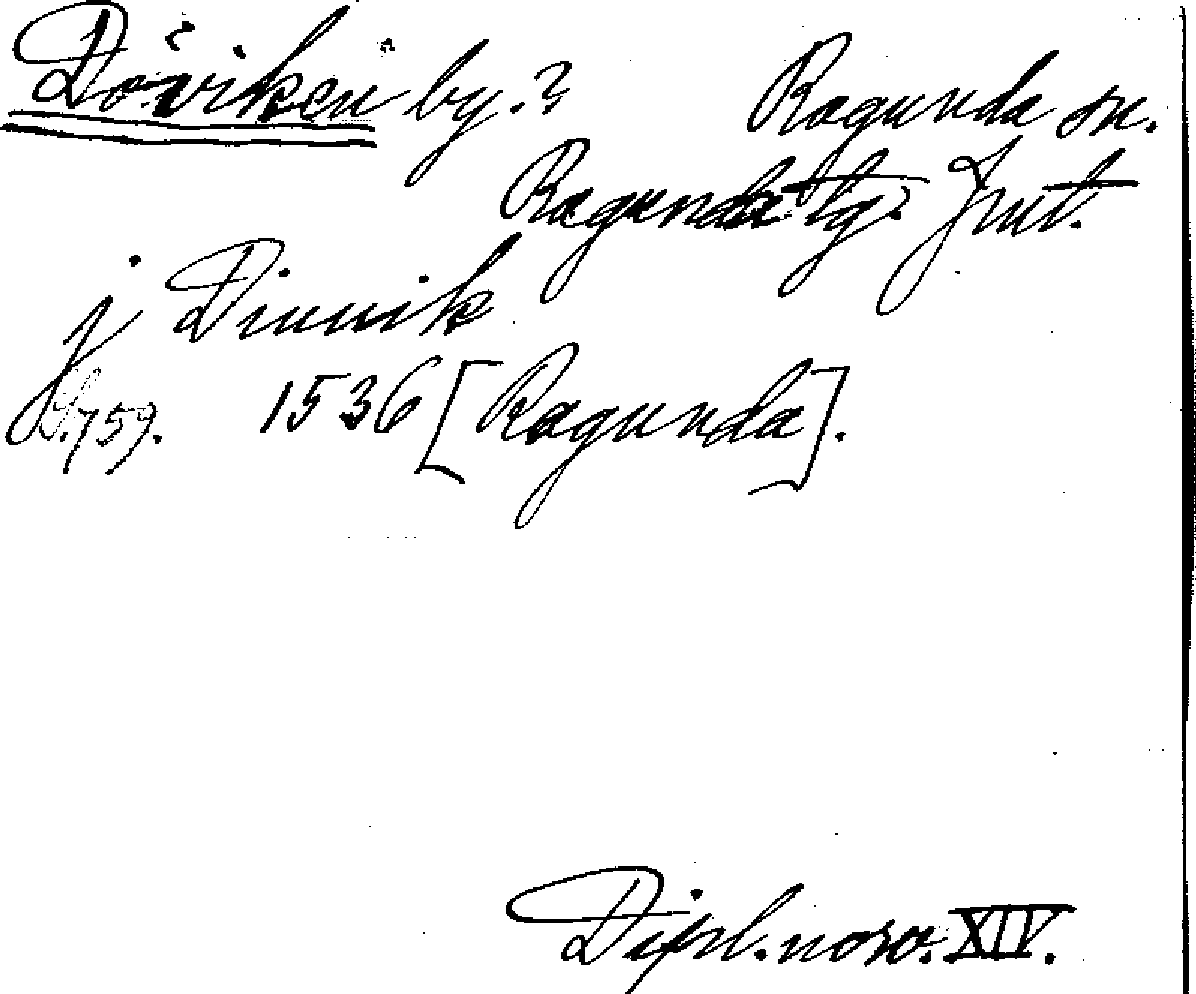 Döviken by.? Ragunda sn.
Ragunda tg. Jmt.
j Dinuik
S. 759. 1536 [Ragunda].
Dipl. norv. XIV.